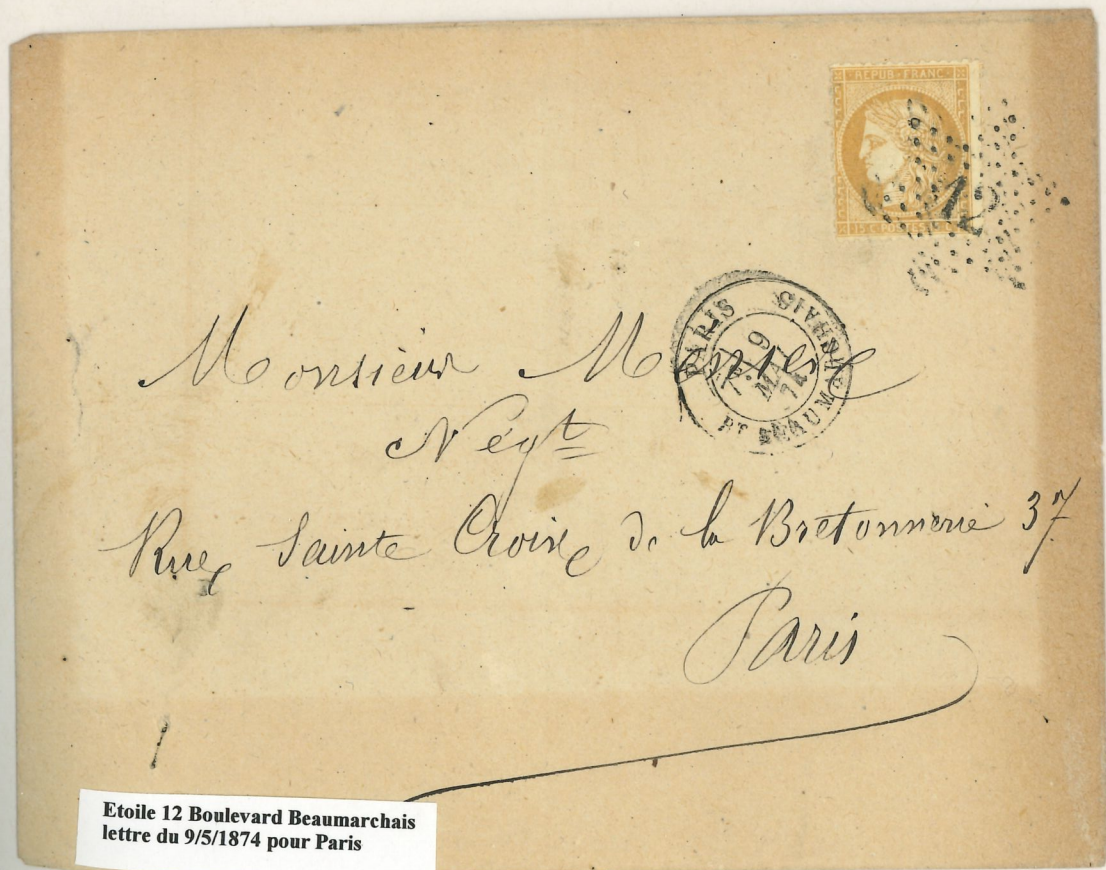 REPUB · FRANC
15 C · POSTES · 15 C
12
PARIS
Bᵈ BEAUMARCHAIS
9
MAI
74
Monsieur
Négt
Rue Sainte Croix de la Bretonnerie 37
Paris
Etoile 12 Boulevard Beaumarchais
lettre du 9/5/1874 pour Paris